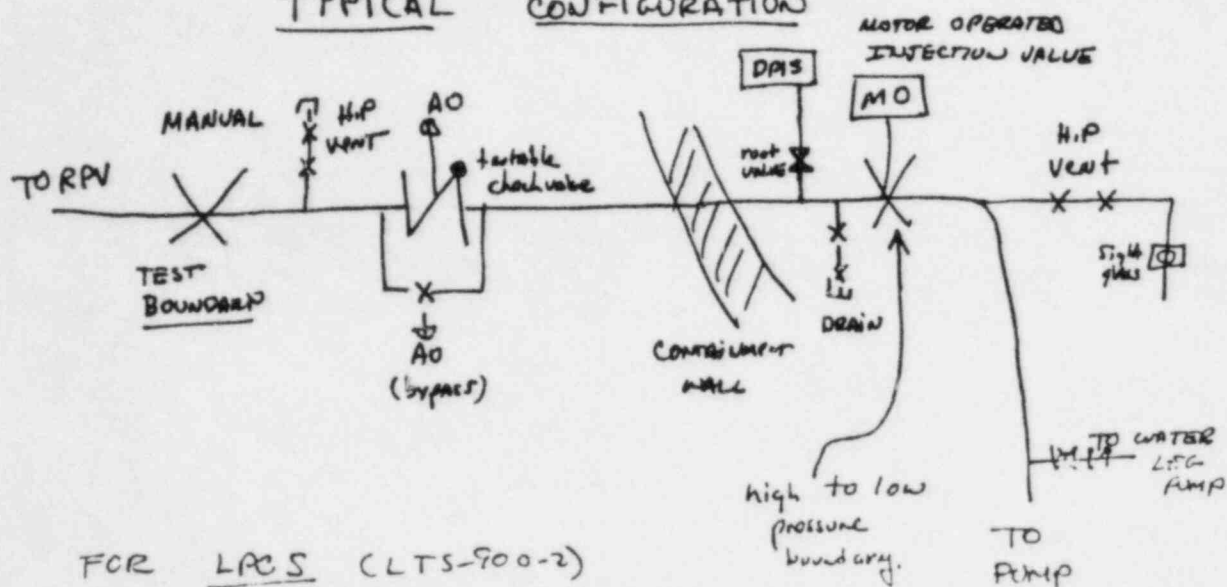 TYPICAL CONFIGURATION
MOTOR OPERATED
INJECTION VALUE
DPIS
MO
MANUAL
H.P
VENT
AO
testable
checkvalve
root
VALUE
H.P
Vent
TO RPV
TEST
BOUNDARY
AO
(bypass)
CONTAINMENT
WALL
DRAIN
Sight
glass
high to low
pressure
boundary.
TO WATER
LEG
PUMP
TO
PUMP
FOR LPCS (LTS-900-2)